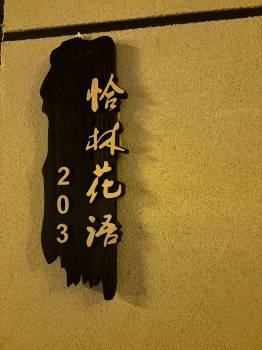 恰林花语
203